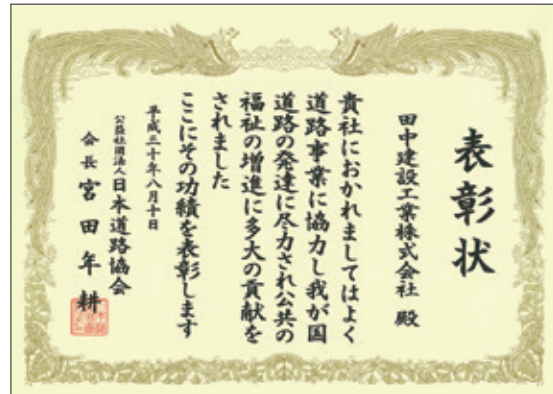 表彰状
田中建設工業株式会社 殿
貴社におかれましてはよく
道路事業に協力し我が国
道路の発達に尽力され公共の
福祉の増進に多大の貢献を
されました
ここにその功績を表彰します
平成三十年八月十日
公益社団法人日本道路協会
会長 宮田年耕